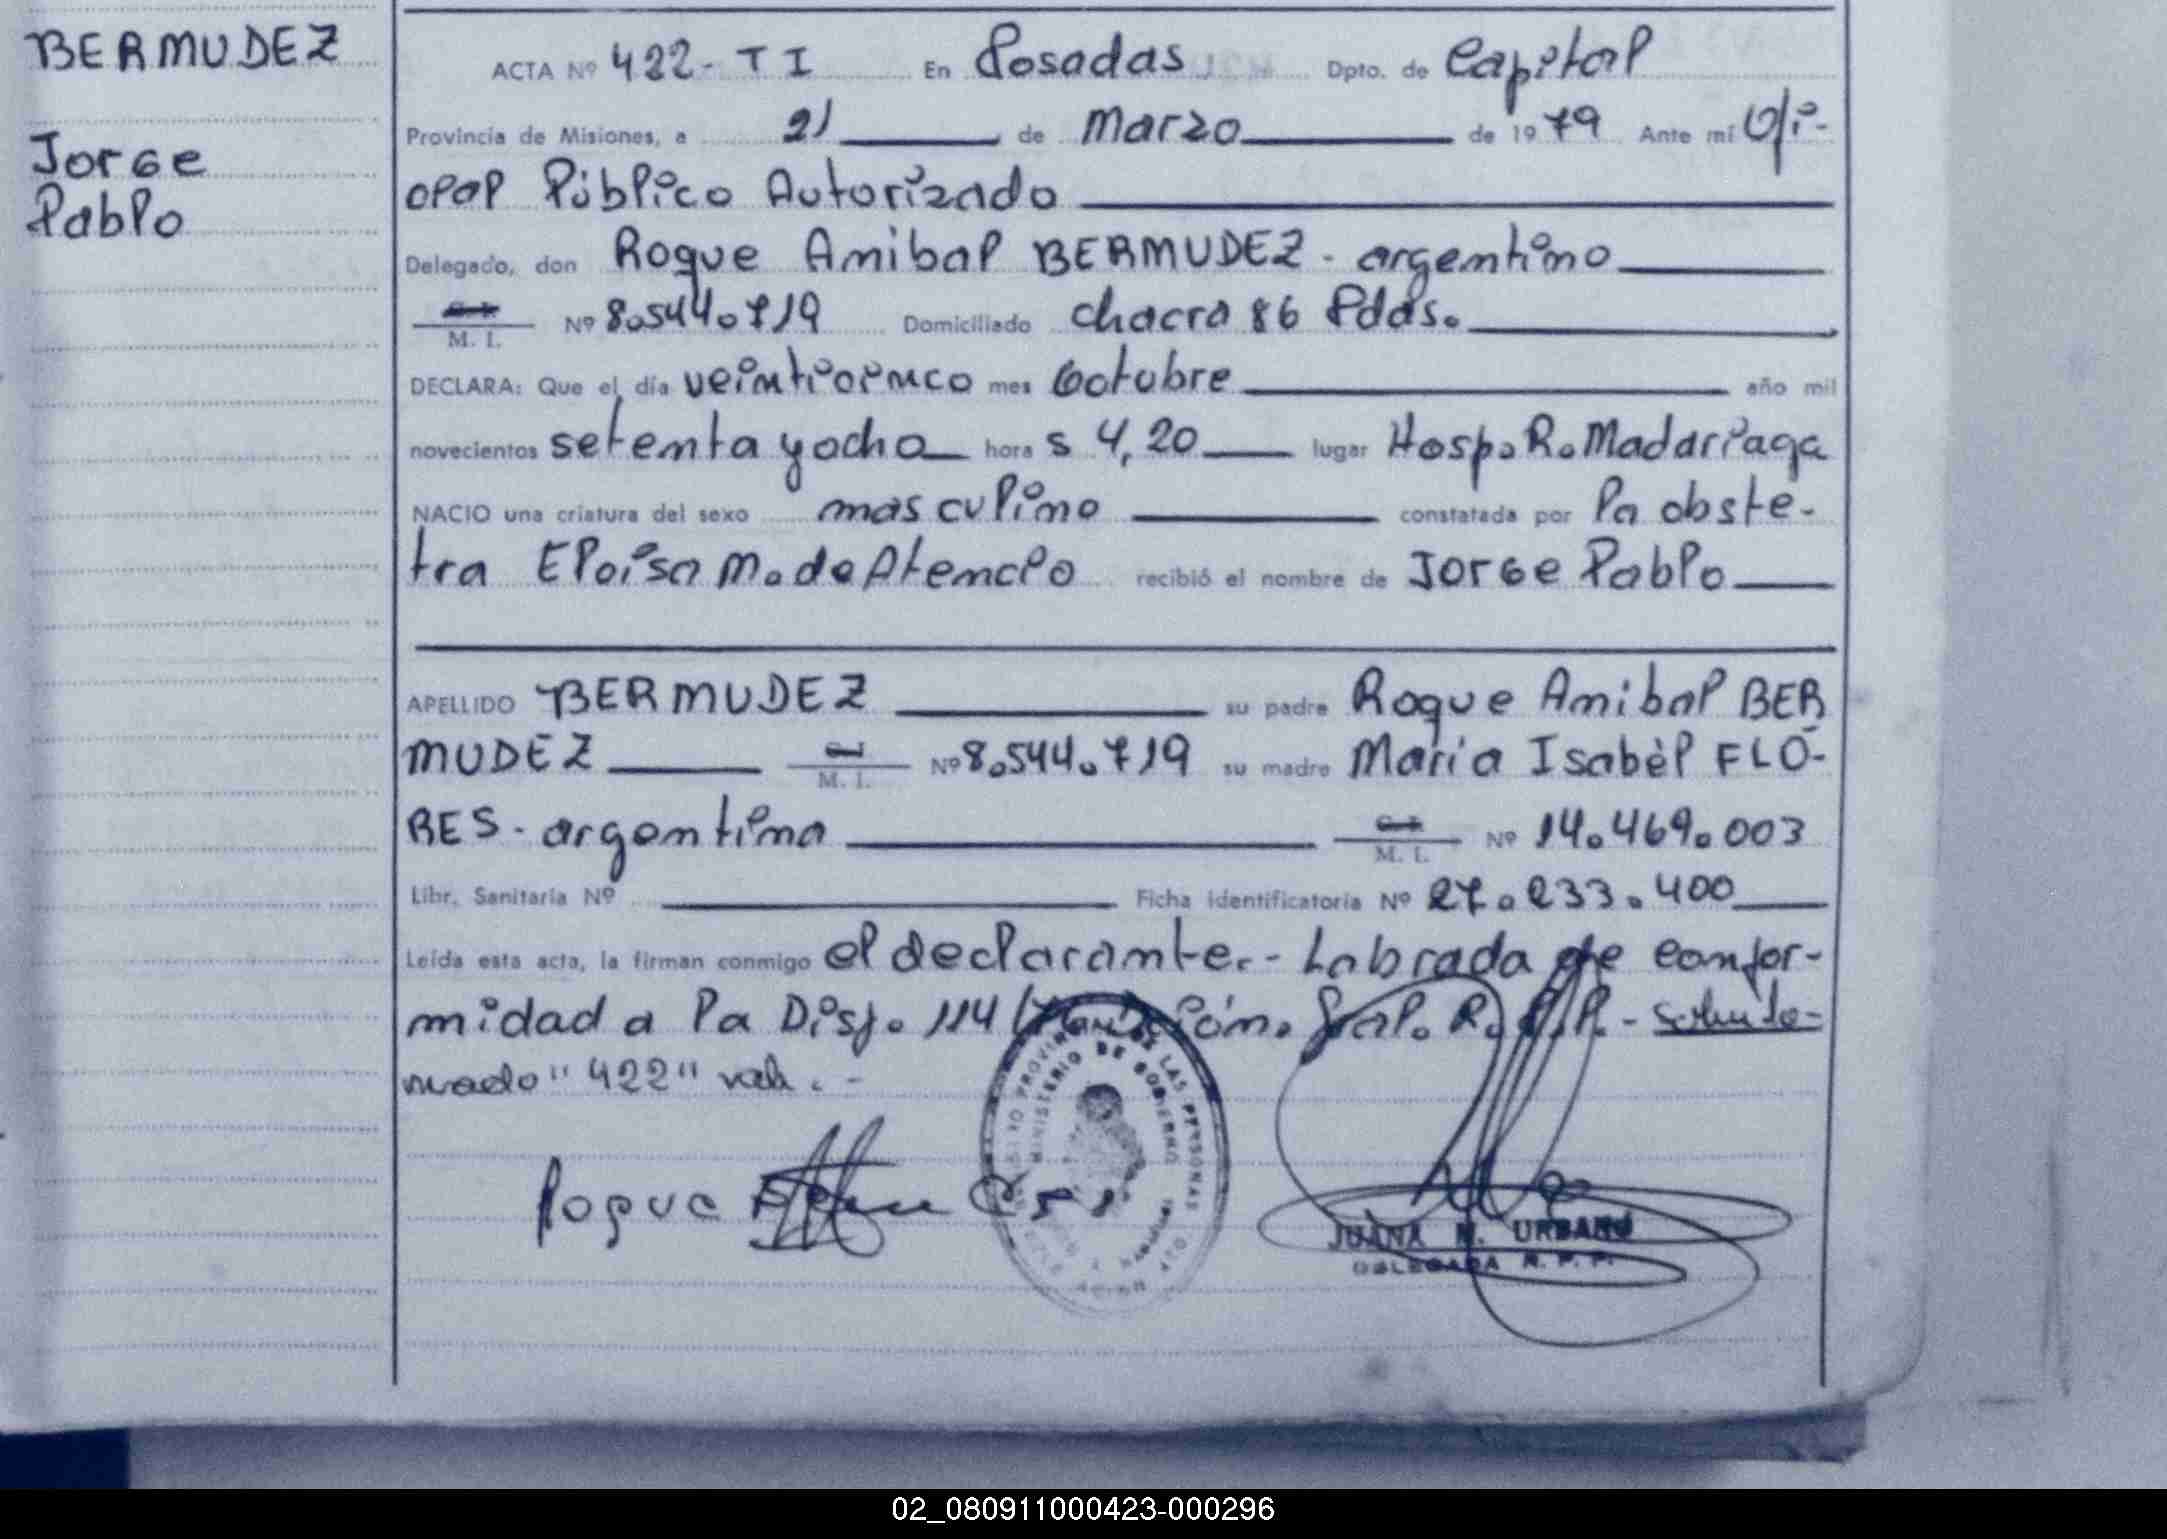 BERMUDEZ
Jorge
Pablo
ACTA Nº 422- T I En Posadas Dpto. de Capital
Provincia de Misiones, a 21 de Marzo de 1979 Ante mí Ofi-
cial Público Autorizado
Delegado, don Roque Anibal BERMUDEZ - argentino
M. I. Nº 8.544.719 Domiciliado chacra 86 Pdas.
DECLARA: Que el día veinticinco mes Octubre año mil
novecientos setenta y ocho hora s 4,20 lugar Hosp. R. Madariaga
NACIO una criatura del sexo masculino constatada por la obste-
tra Eloisa M. de Atencio recibió el nombre de Jorge Pablo
APELLIDO BERMUDEZ su padre Roque Anibal BER
MUDEZ M. I. Nº 8.544.719 su madre María Isabèl FLO-
RES - argentina M. I. Nº 14.469.003
Libr. Sanitaria Nº Ficha identificatoria Nº 27.233.400
Leída esta acta, la firman conmigo el declarante.- Labrada de confor-
midad a la Disp. 114 Gral. R.P.P. -
"422" vale. -
Roque
MINISTERIO DE GOBIERNO
DE LAS PERSONAS
JUANA N. URBANO
DELEGADA R. P. P.
02_080911000423-000296